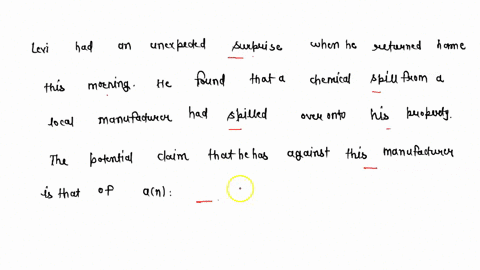 Levi had an unexpected surprise when he returned home
this morning. He found that a chemical spill from a
local manufacturer had spilled over onto his property.
The potential claim that he has against this manufacturer
is that of a(n): __.